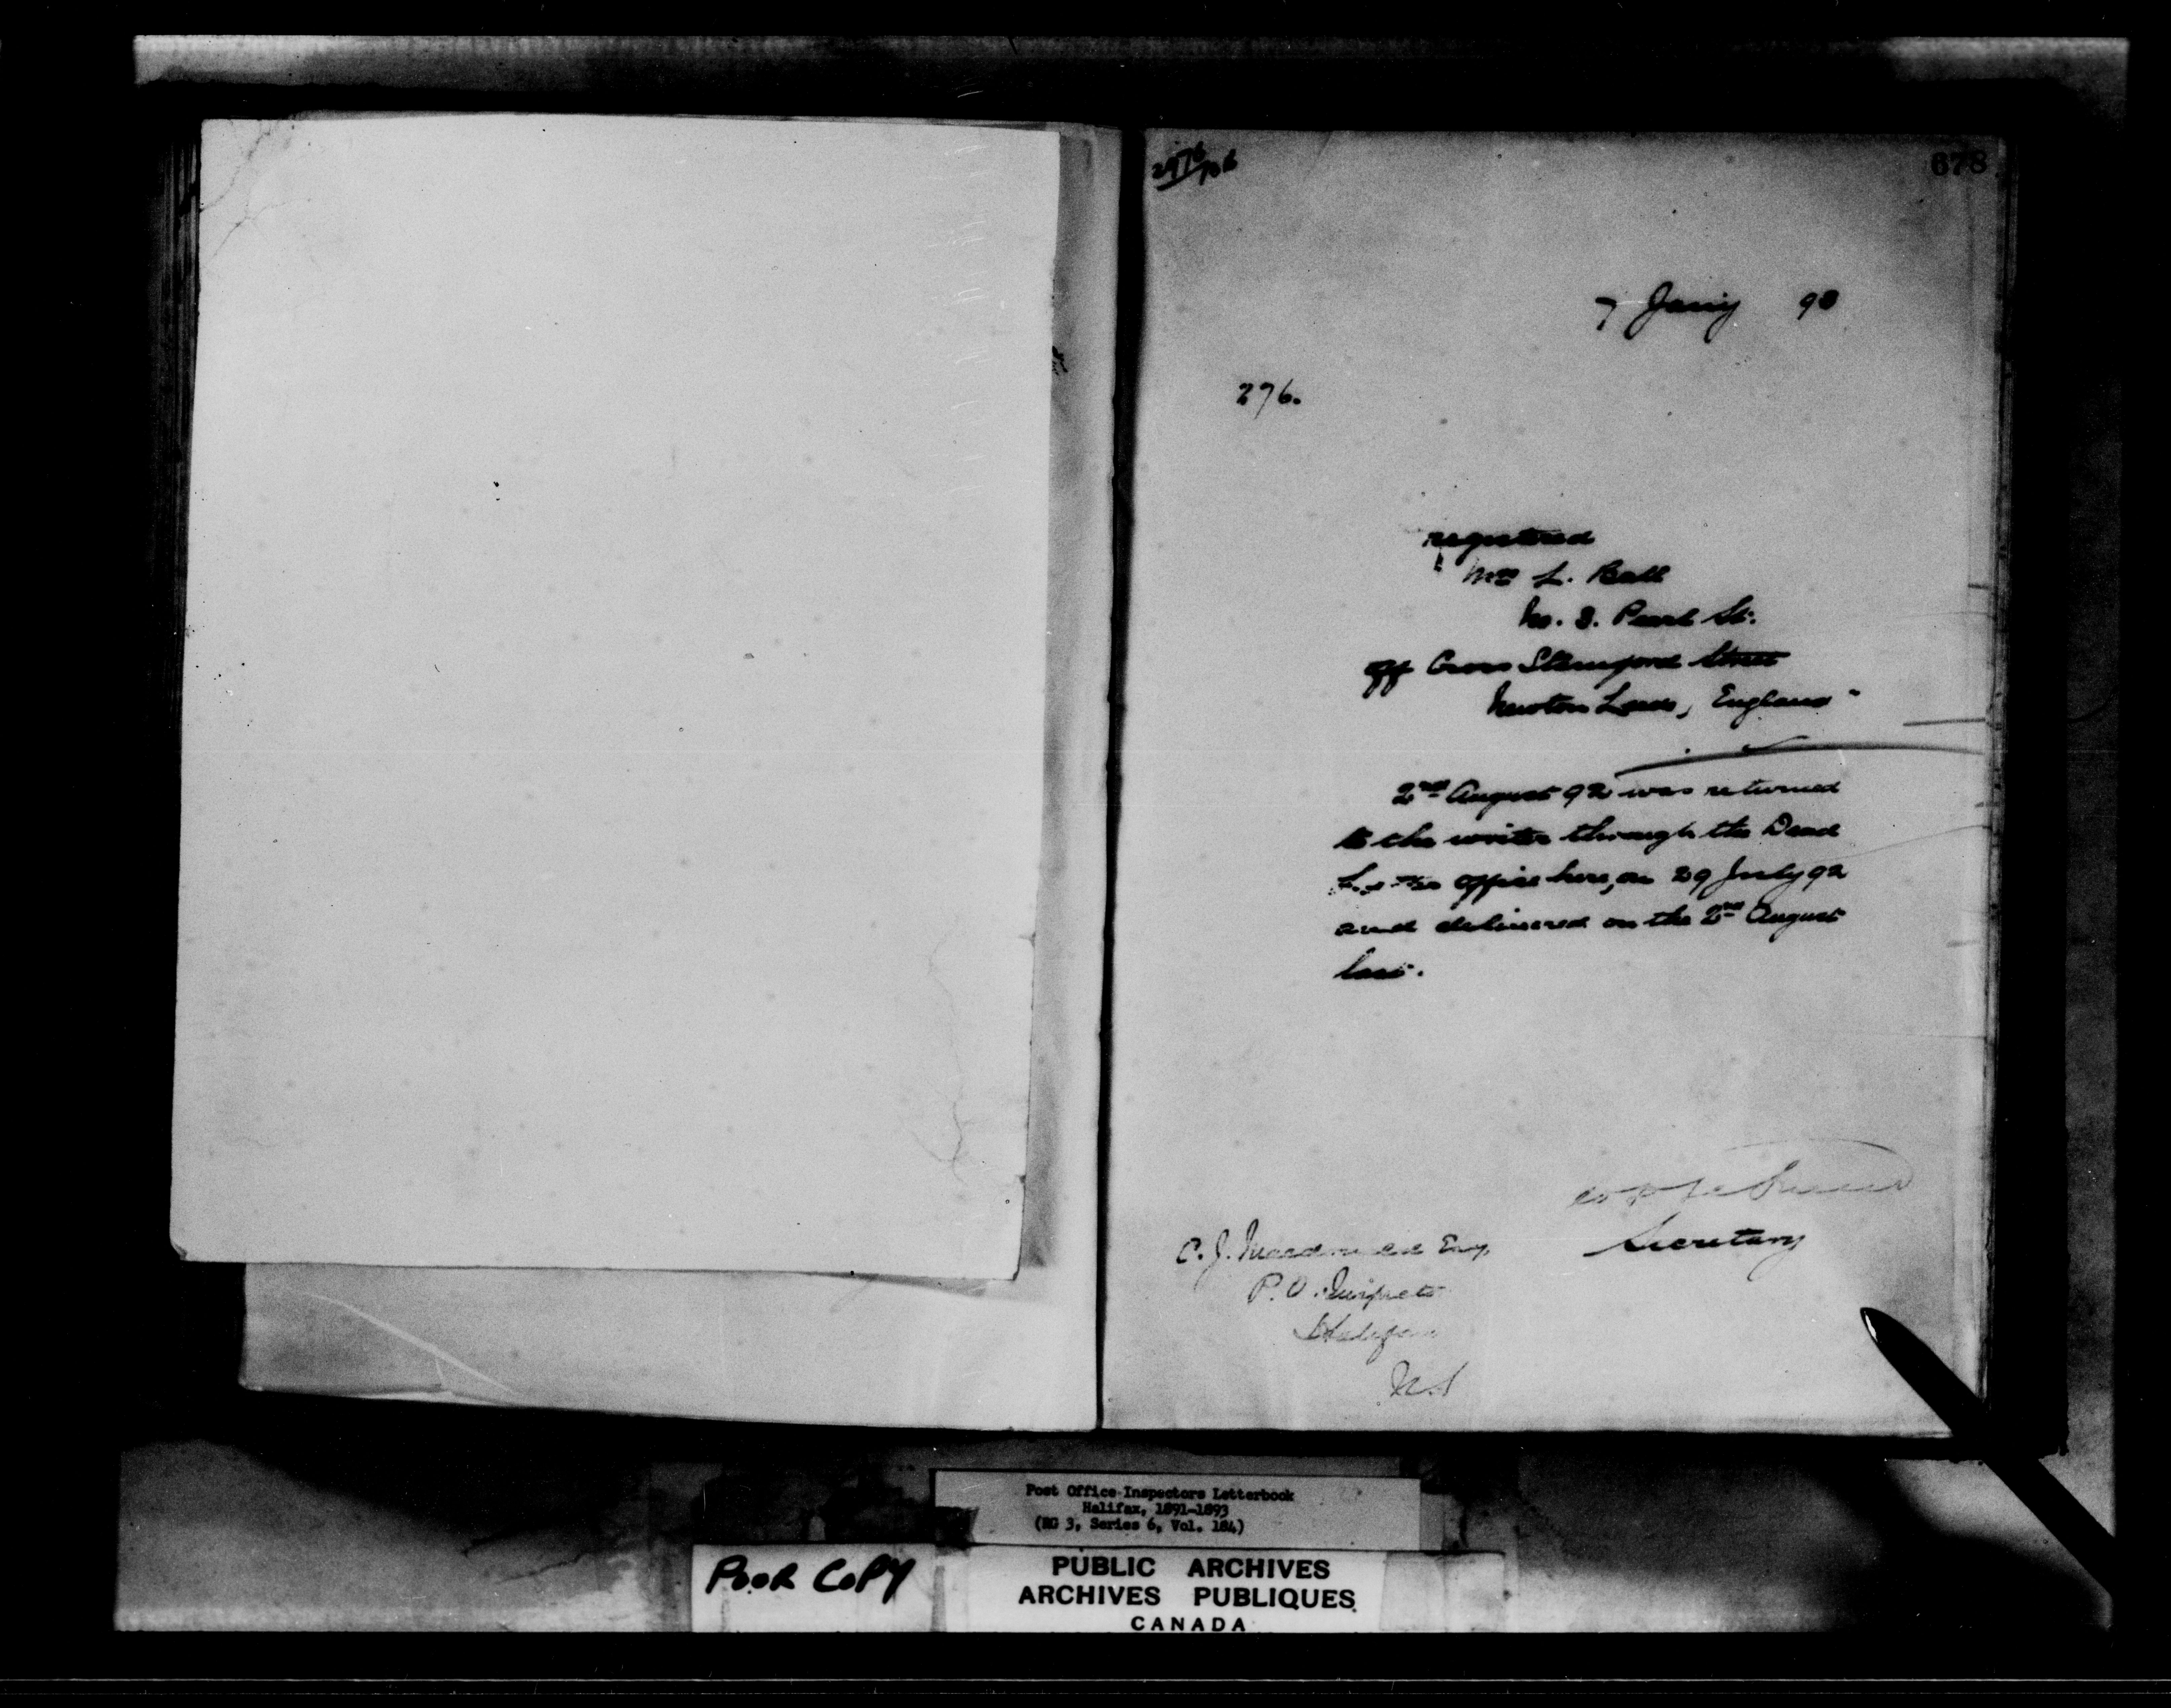 678
7 Jany 93
276.
registered
Mrs L. Ball
No. 3. Pearl St.
off Cross Stamford Street
Newton Leeds, England"
2nd August 92 was returned
to the writer through the Dead
Letter office here, on 29 July 92
and delivered on the 2nd August
last.
Secretary
C. J. Macdonald Esq
P.O. Inspector
Halifax
N.S
Post Office Inspectors Letterbook
Halifax, 1891-1893
(RG 3, Series 6, Vol. 184)
POOR COPY
PUBLIC ARCHIVES
ARCHIVES PUBLIQUES
CANADA